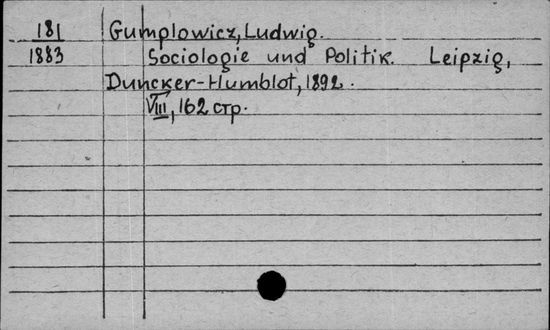 181 Gumplowicz, Ludwig.
1883 Sociologie und Politik. Leipzig,
Duncker-Humblot, 1892.
VIII, 162 стр.